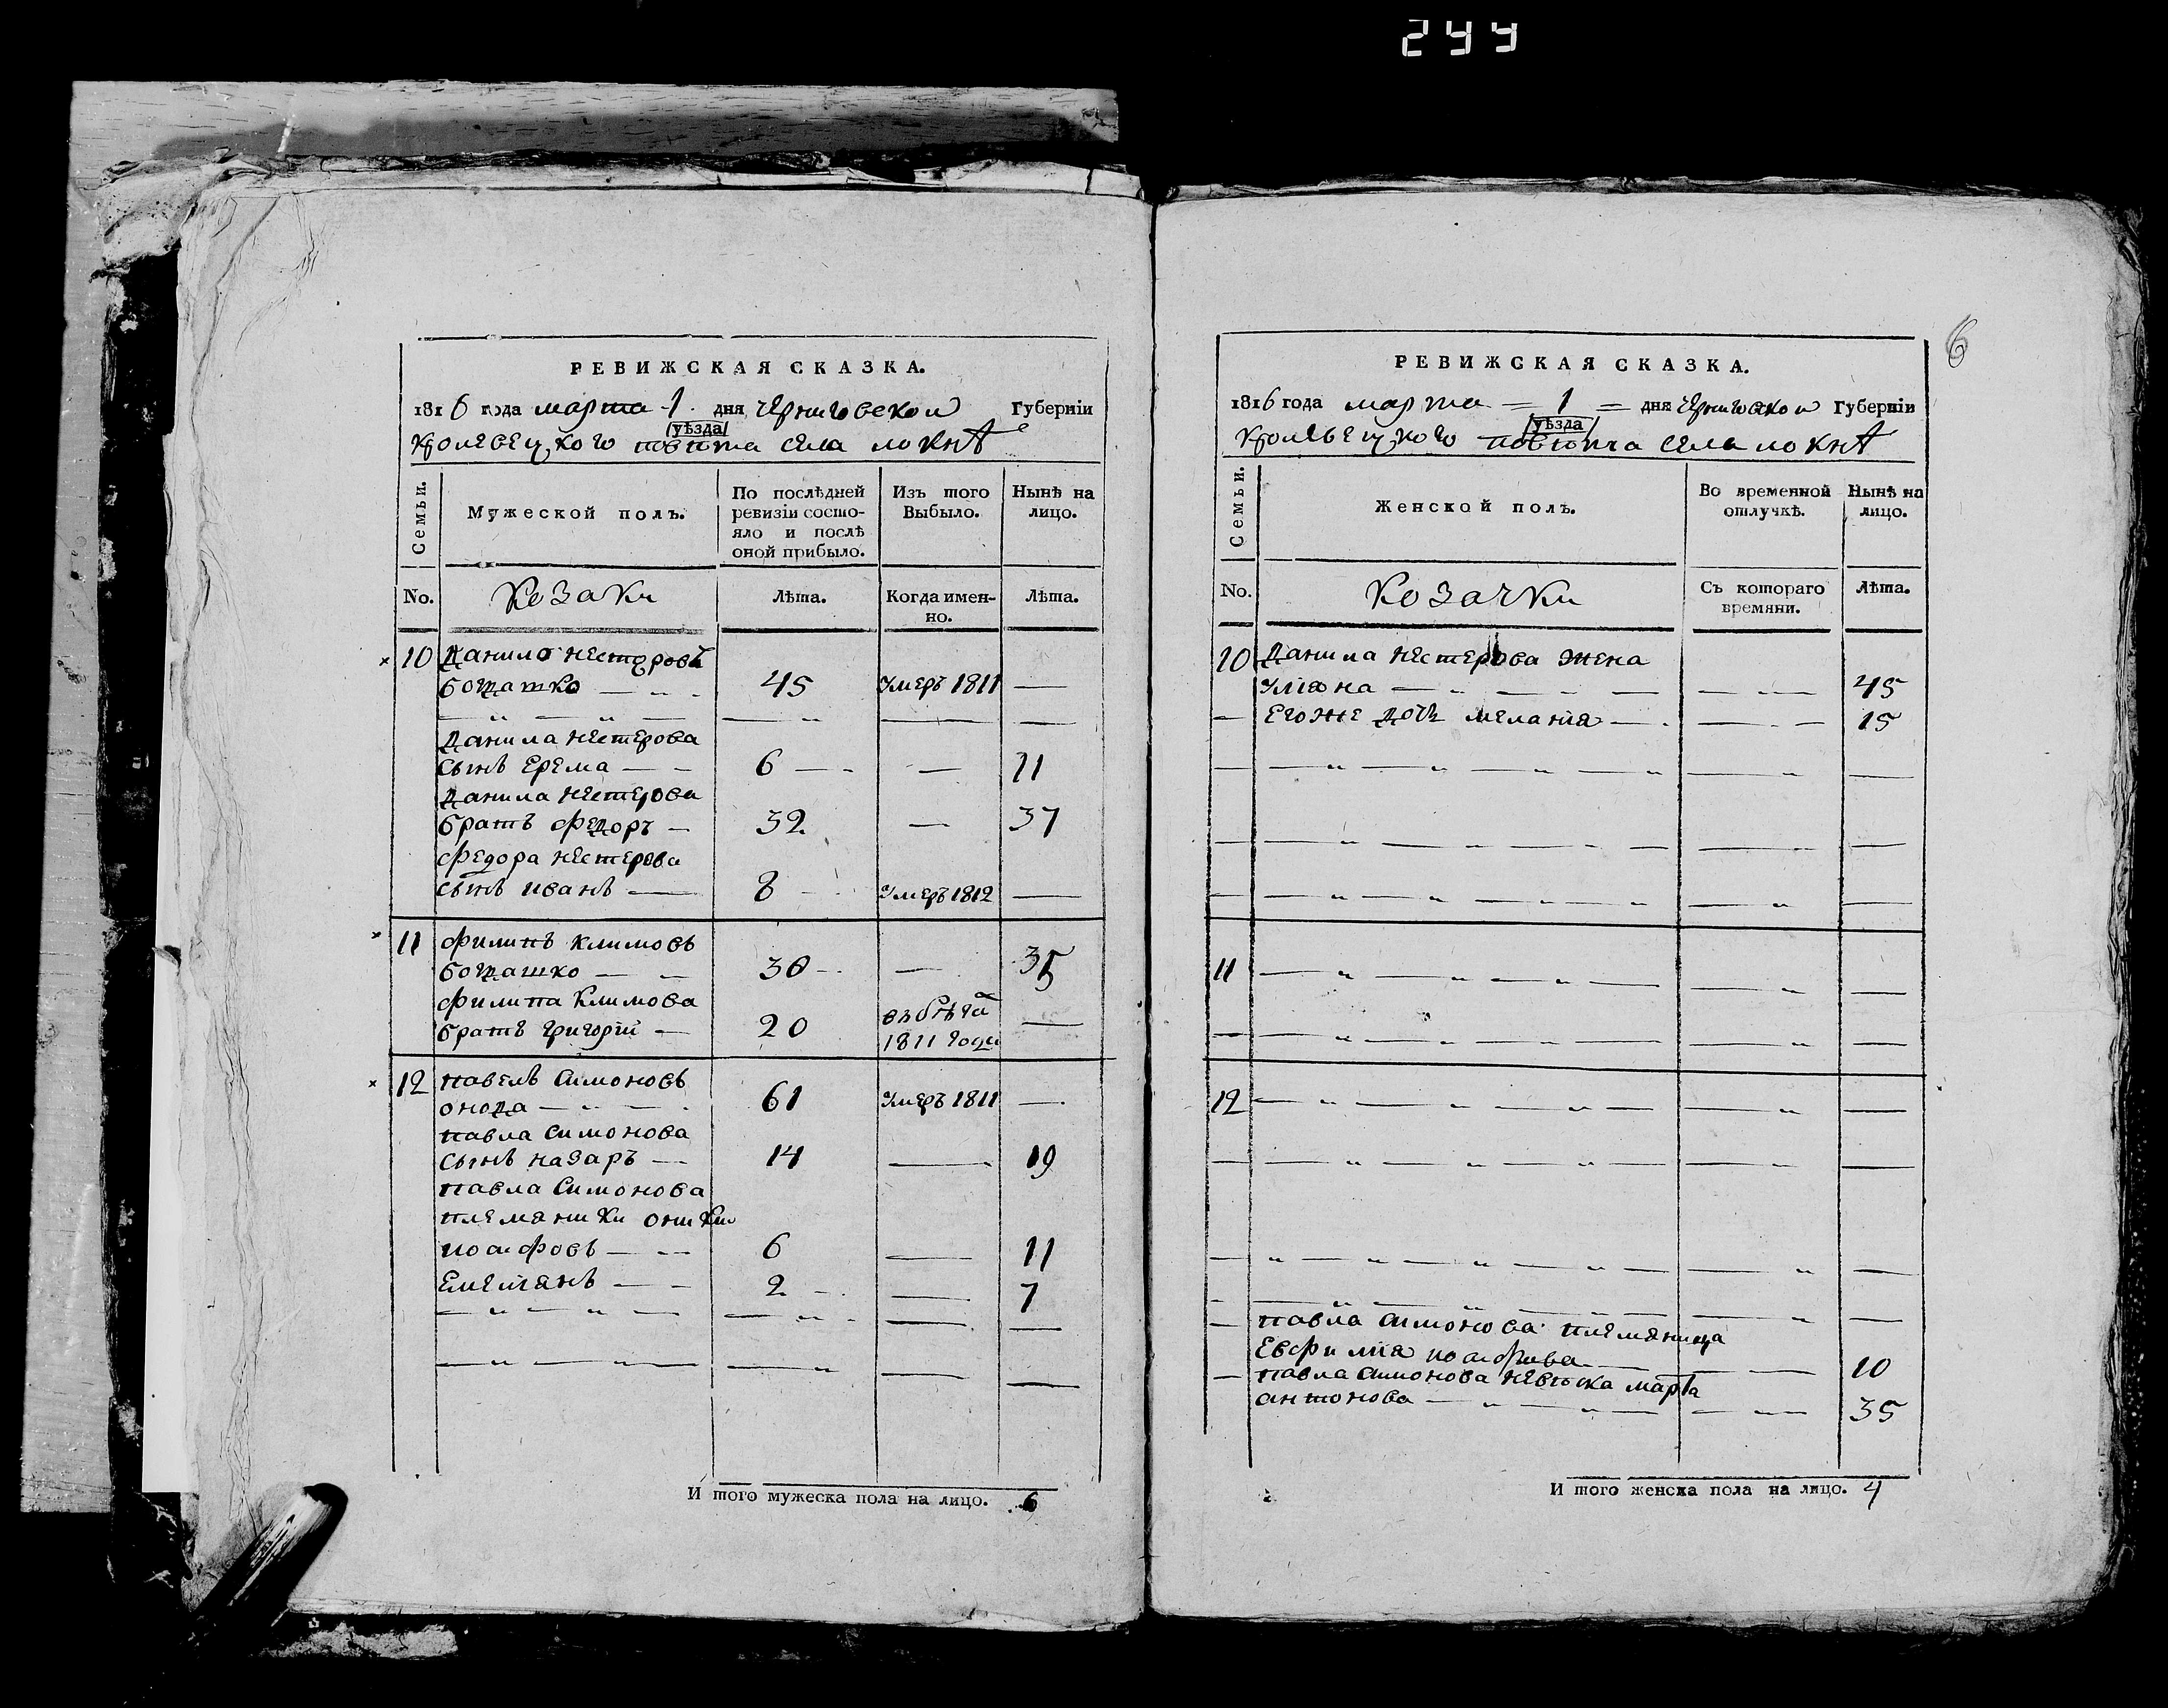 244
РЕВИЖСКАЯ СКАЗКА.
1816 года марта 1 дня Черниговской Губерніи
уѣзда
Кролевецкого повѣта села локнѣ
Семьи.
Мужеской полъ.
По послѣдней ревизіи состо-
яло и послѣ
оной прибыло.
Изъ того
Выбыло.
Нынѣ на
лицо.
No.
Козаки
Лѣта.
Когда имен-
но.
Лѣта.
10 Данило нестеровъ
богдашко — 45 умеръ 1811 —
Данила нестерова
сынъ ерема — 6 — 11
Данила нестерова
братъ федоръ — 32 — 37
федора нестерова
сынъ иванъ — 8 умеръ 1812 —
11 филипъ климовъ
богдашко — 30 — 35
филипа климова
братъ григорій — 20 въ бѣга
1811 года —
12 павелъ симоновъ
61 умеръ 1811 —
павла симонова
сынъ назаръ — 14 — 19
павла симонова
племяники
иосифовъ — 6 — 11
емелянъ — 2 — 7
И того мужеска пола на лицо. 6
6
РЕВИЖСКАЯ СКАЗКА.
1816 года марта 1 дня Черниговской Губерніи
уѣзда
Кролевецкого повѣта села локнѣ
Семьи.
Женской полъ.
Во временной
отлучкѣ.
Нынѣ на
лицо.
No.
Козачки
Съ котораго
времяни.
Лѣта.
10 Данила нестерова жена
уліяна — 45
его же дочь меланія — 15
11
12
павла симонова племяница
евфимія иосифова — 10
павла симонова невѣска марѳа
антонова — 35
И того женска пола на лицо. 4